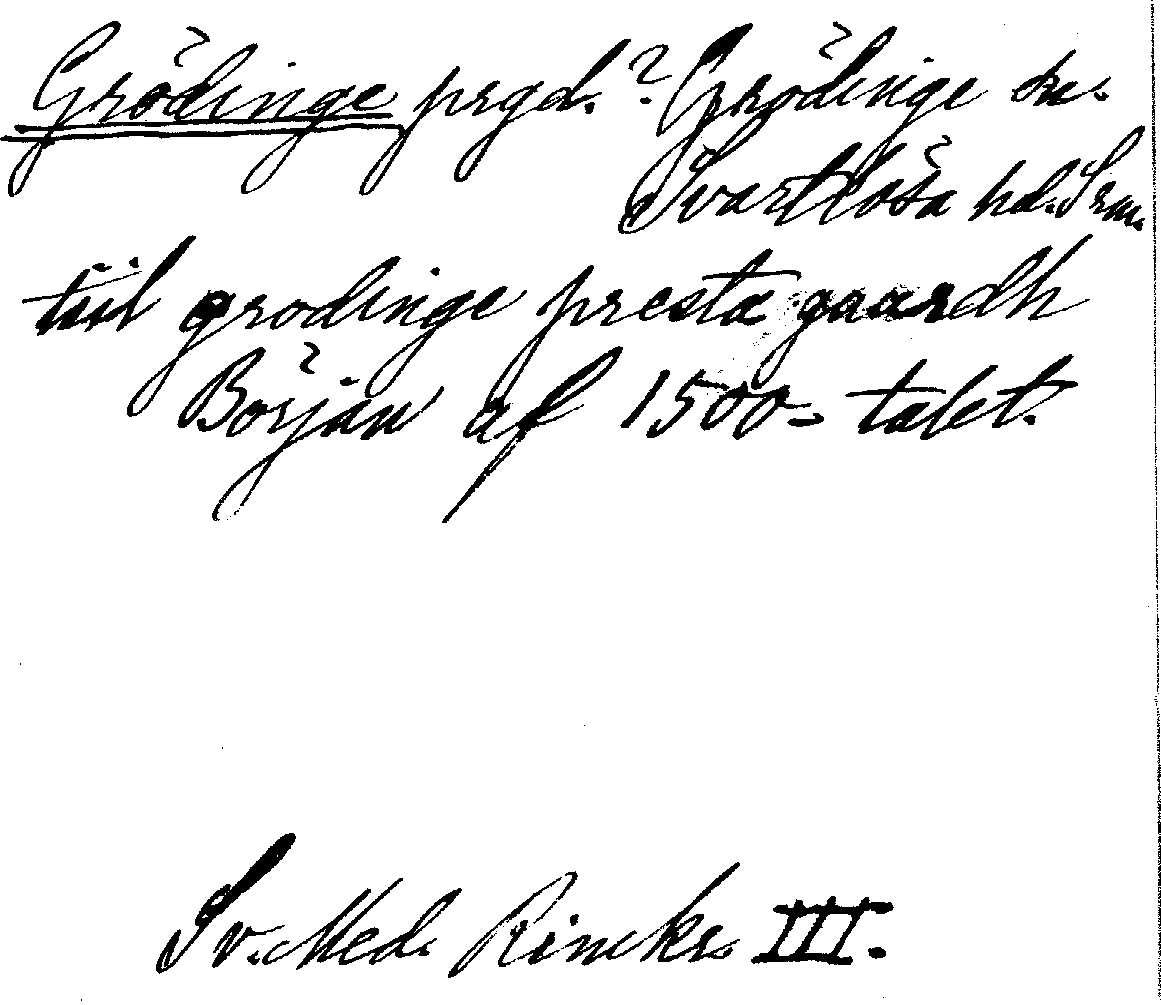 Grödinge prgd.? Grödinge sn.
Svartlösa hd. Srm.
tiil grodinge presta gaardh
Början af 1500-talet.
Sv. Med. Rimkr. III.